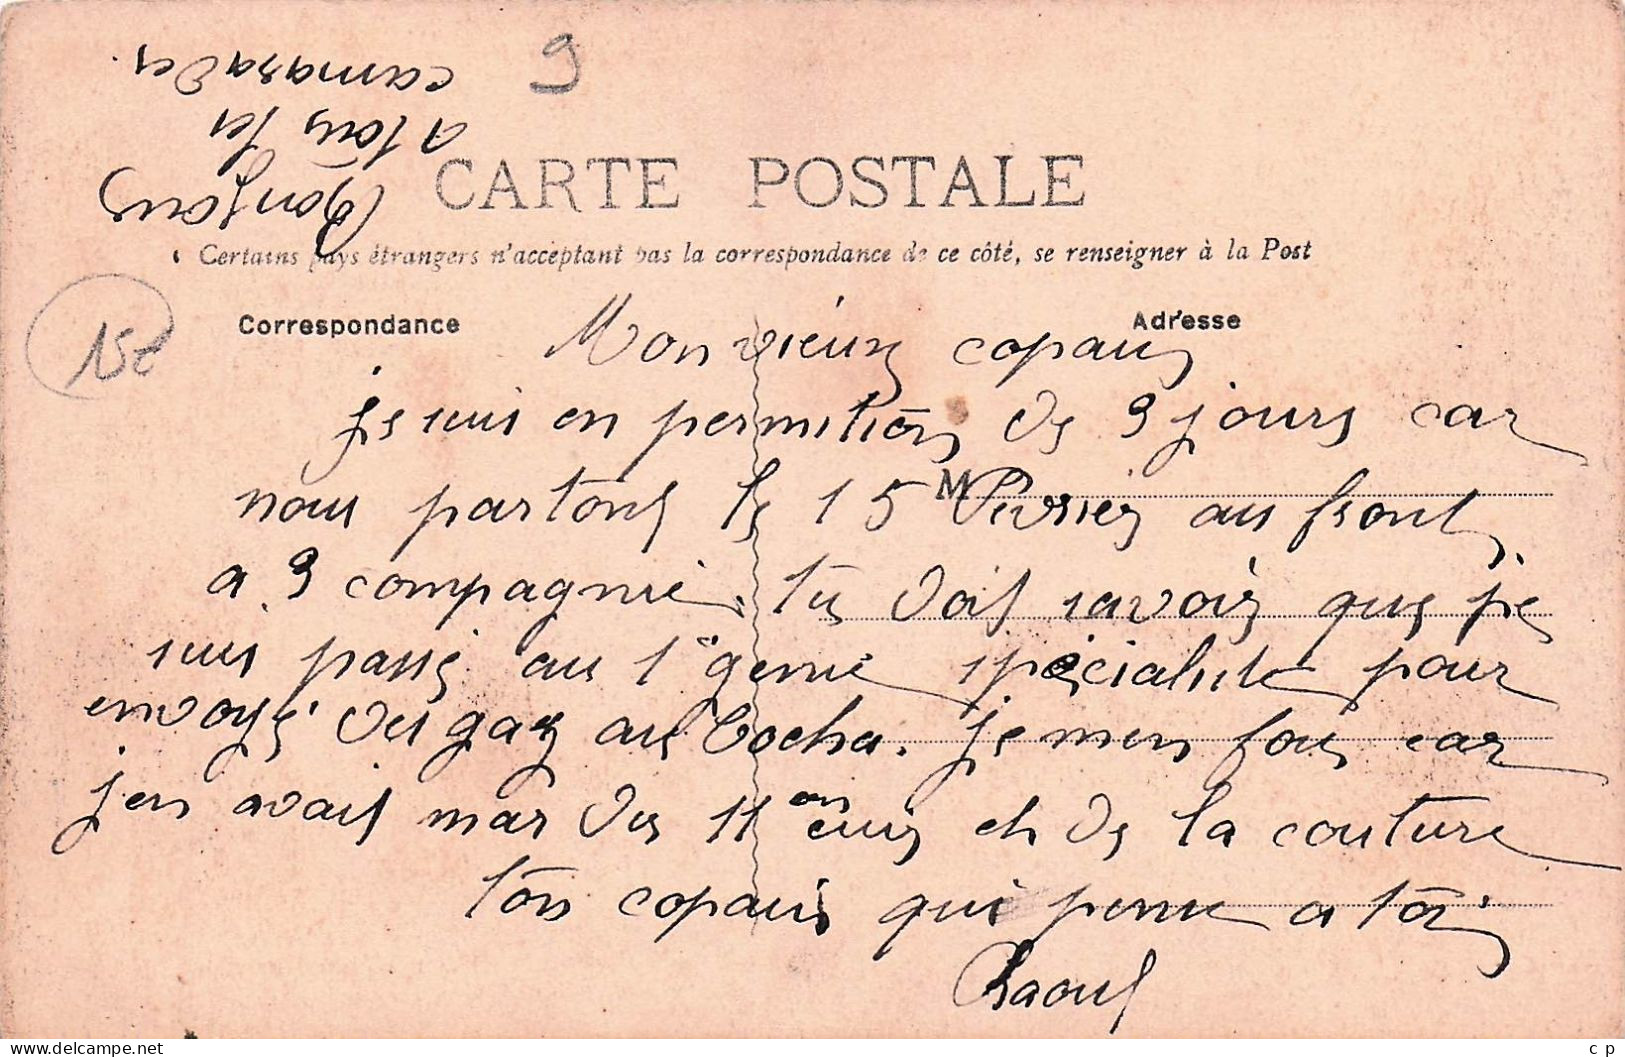 Bonjour
a tous les
camarades.
9
CARTE POSTALE
Certains pays étrangers n'acceptant pas la correspondance de ce côté, se renseigner à la Post
Correspondance
Adresse
15e
Mon vieux copain
je suis en permition de 3 jours car
nous partons le 15 Fevrier au front
M
a 3 compagnie. tu doit savoir que je
suis passé au 1er genie spécialité pour
envoyé des gaz au boche. je men fous car
j'en avait mar des 11 en cuir et de la couture
ton copain qui pense a toi
Raoul
c p